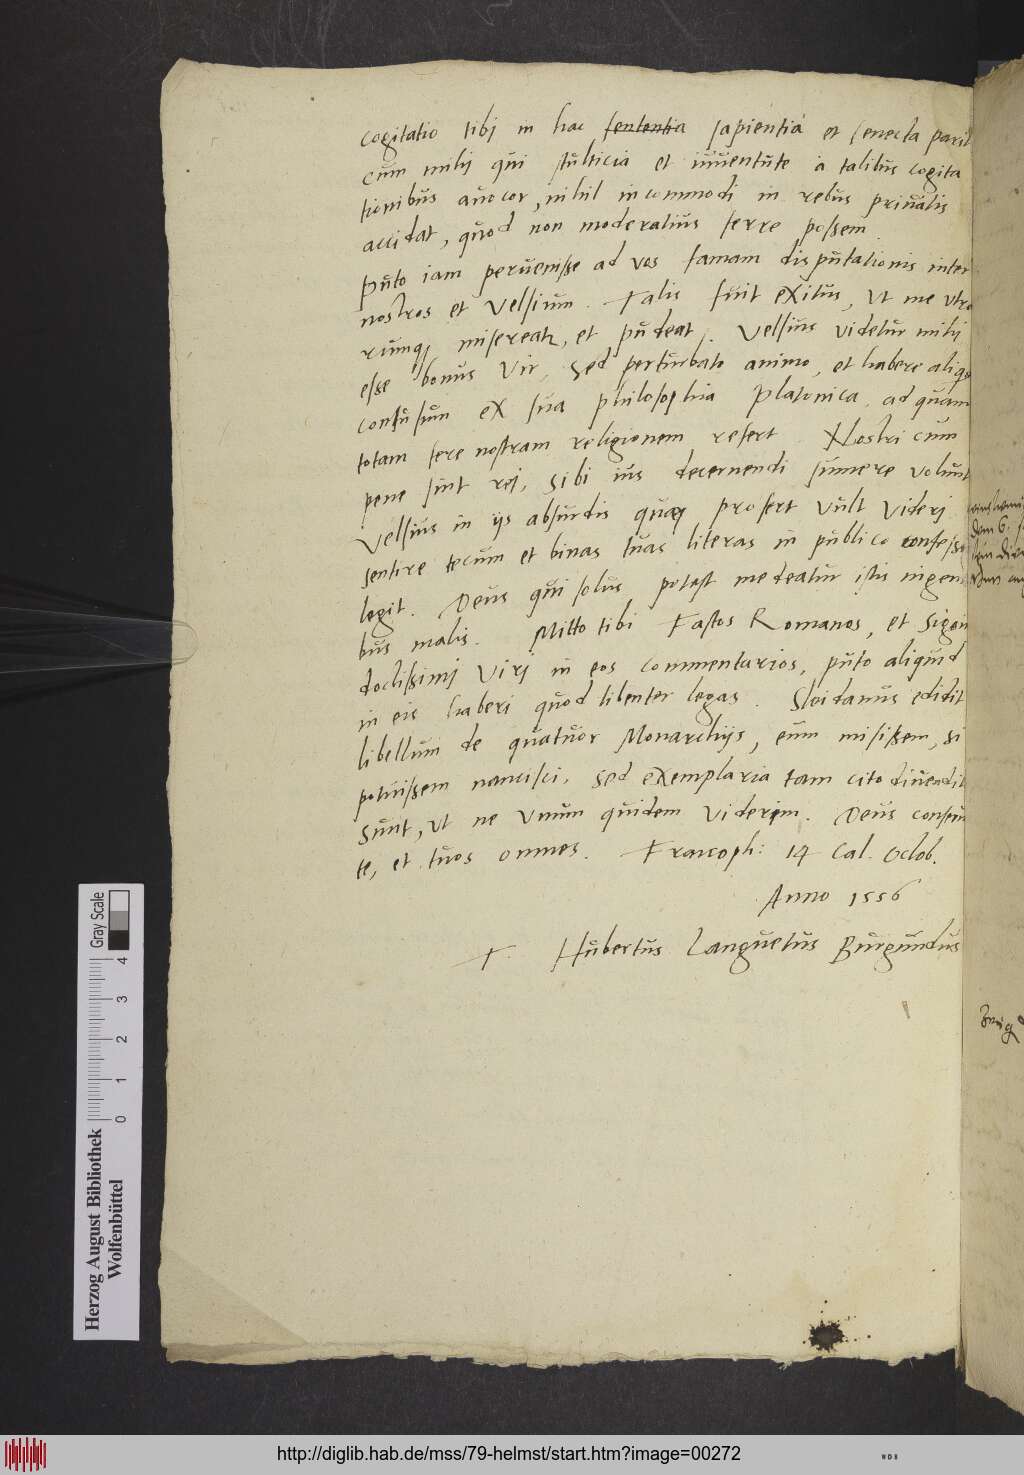 cogitatio tibj in hac sententia sapientia et senecta parit
cum mihj qui stulticia et iuuentute a talibus cogita
tionibus auocor, nihil incommodi in rebus priuatis
accidat, quod non moderatius ferre possem.
Puto iam peruenisse ad vos famam disputationis inter
nostros et Velsium. Talis fuit exitus, ut me utro
rumq; misereat, et pudeat. Velsius videtur mihj
esse bonus vir, sed perturbato animo, et habere aliq
confusum ex sua philosophia Platonica ad quam
totam fere nostram religionem refert. Nostri cum
pene sint rej, sibi ius decernendi sumere volunt
Velsius in ijs absurdis quæ profert vult viderj
sentire tecum et binas tuas literas in publico confessu
legit. Deus qui solus potest medeatur istis ingenti
bus malis. Mitto tibi Fastos Romanos, et Sigon
doctissimj virj in eos commentarios, puto aliquid
in eis haberi quod libenter legas. Sleidanus edidit
libellum de quatuor Monarchijs, eum misissem, si
potuissem nancisci. sed exemplaria tam cito diuendit
sunt, ut ne unum quidem viderim. Deus conseru
te, et tuos omnes. Francoph: 14 Cal. Octob.
Anno 1556
T. Hubertus Languetus Burgundus
Gray Scale
0 1 2 3 4
Herzog August Bibliothek
Wolfenbüttel
http://diglib.hab.de/mss/79-helmst/start.htm?image=00272